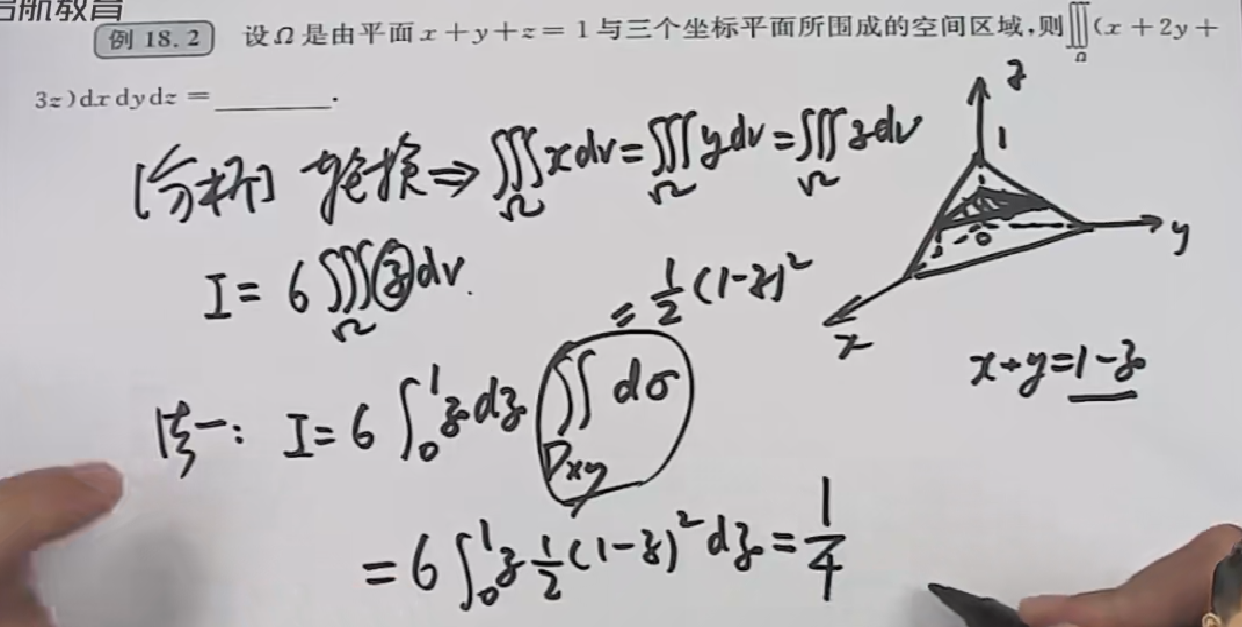 启航教育
例 18.2 设Ω是由平面 x+y+z=1与三个坐标平面所围成的空间区域,则∭_Ω(x+2y+
3z)dxdydz=______.
[分析] 轮换⇒∭_Ω x dv=∭_Ω y dv=∭_Ω z dv
I=6∭_Ω z dv.
=1/2(1-z)²
法一: I=6∫₀¹ z dz ∬_Dxy dσ
=6∫₀¹ z 1/2 (1-z)² dz=1/4
z
1
0
y
x
x+y=1-z